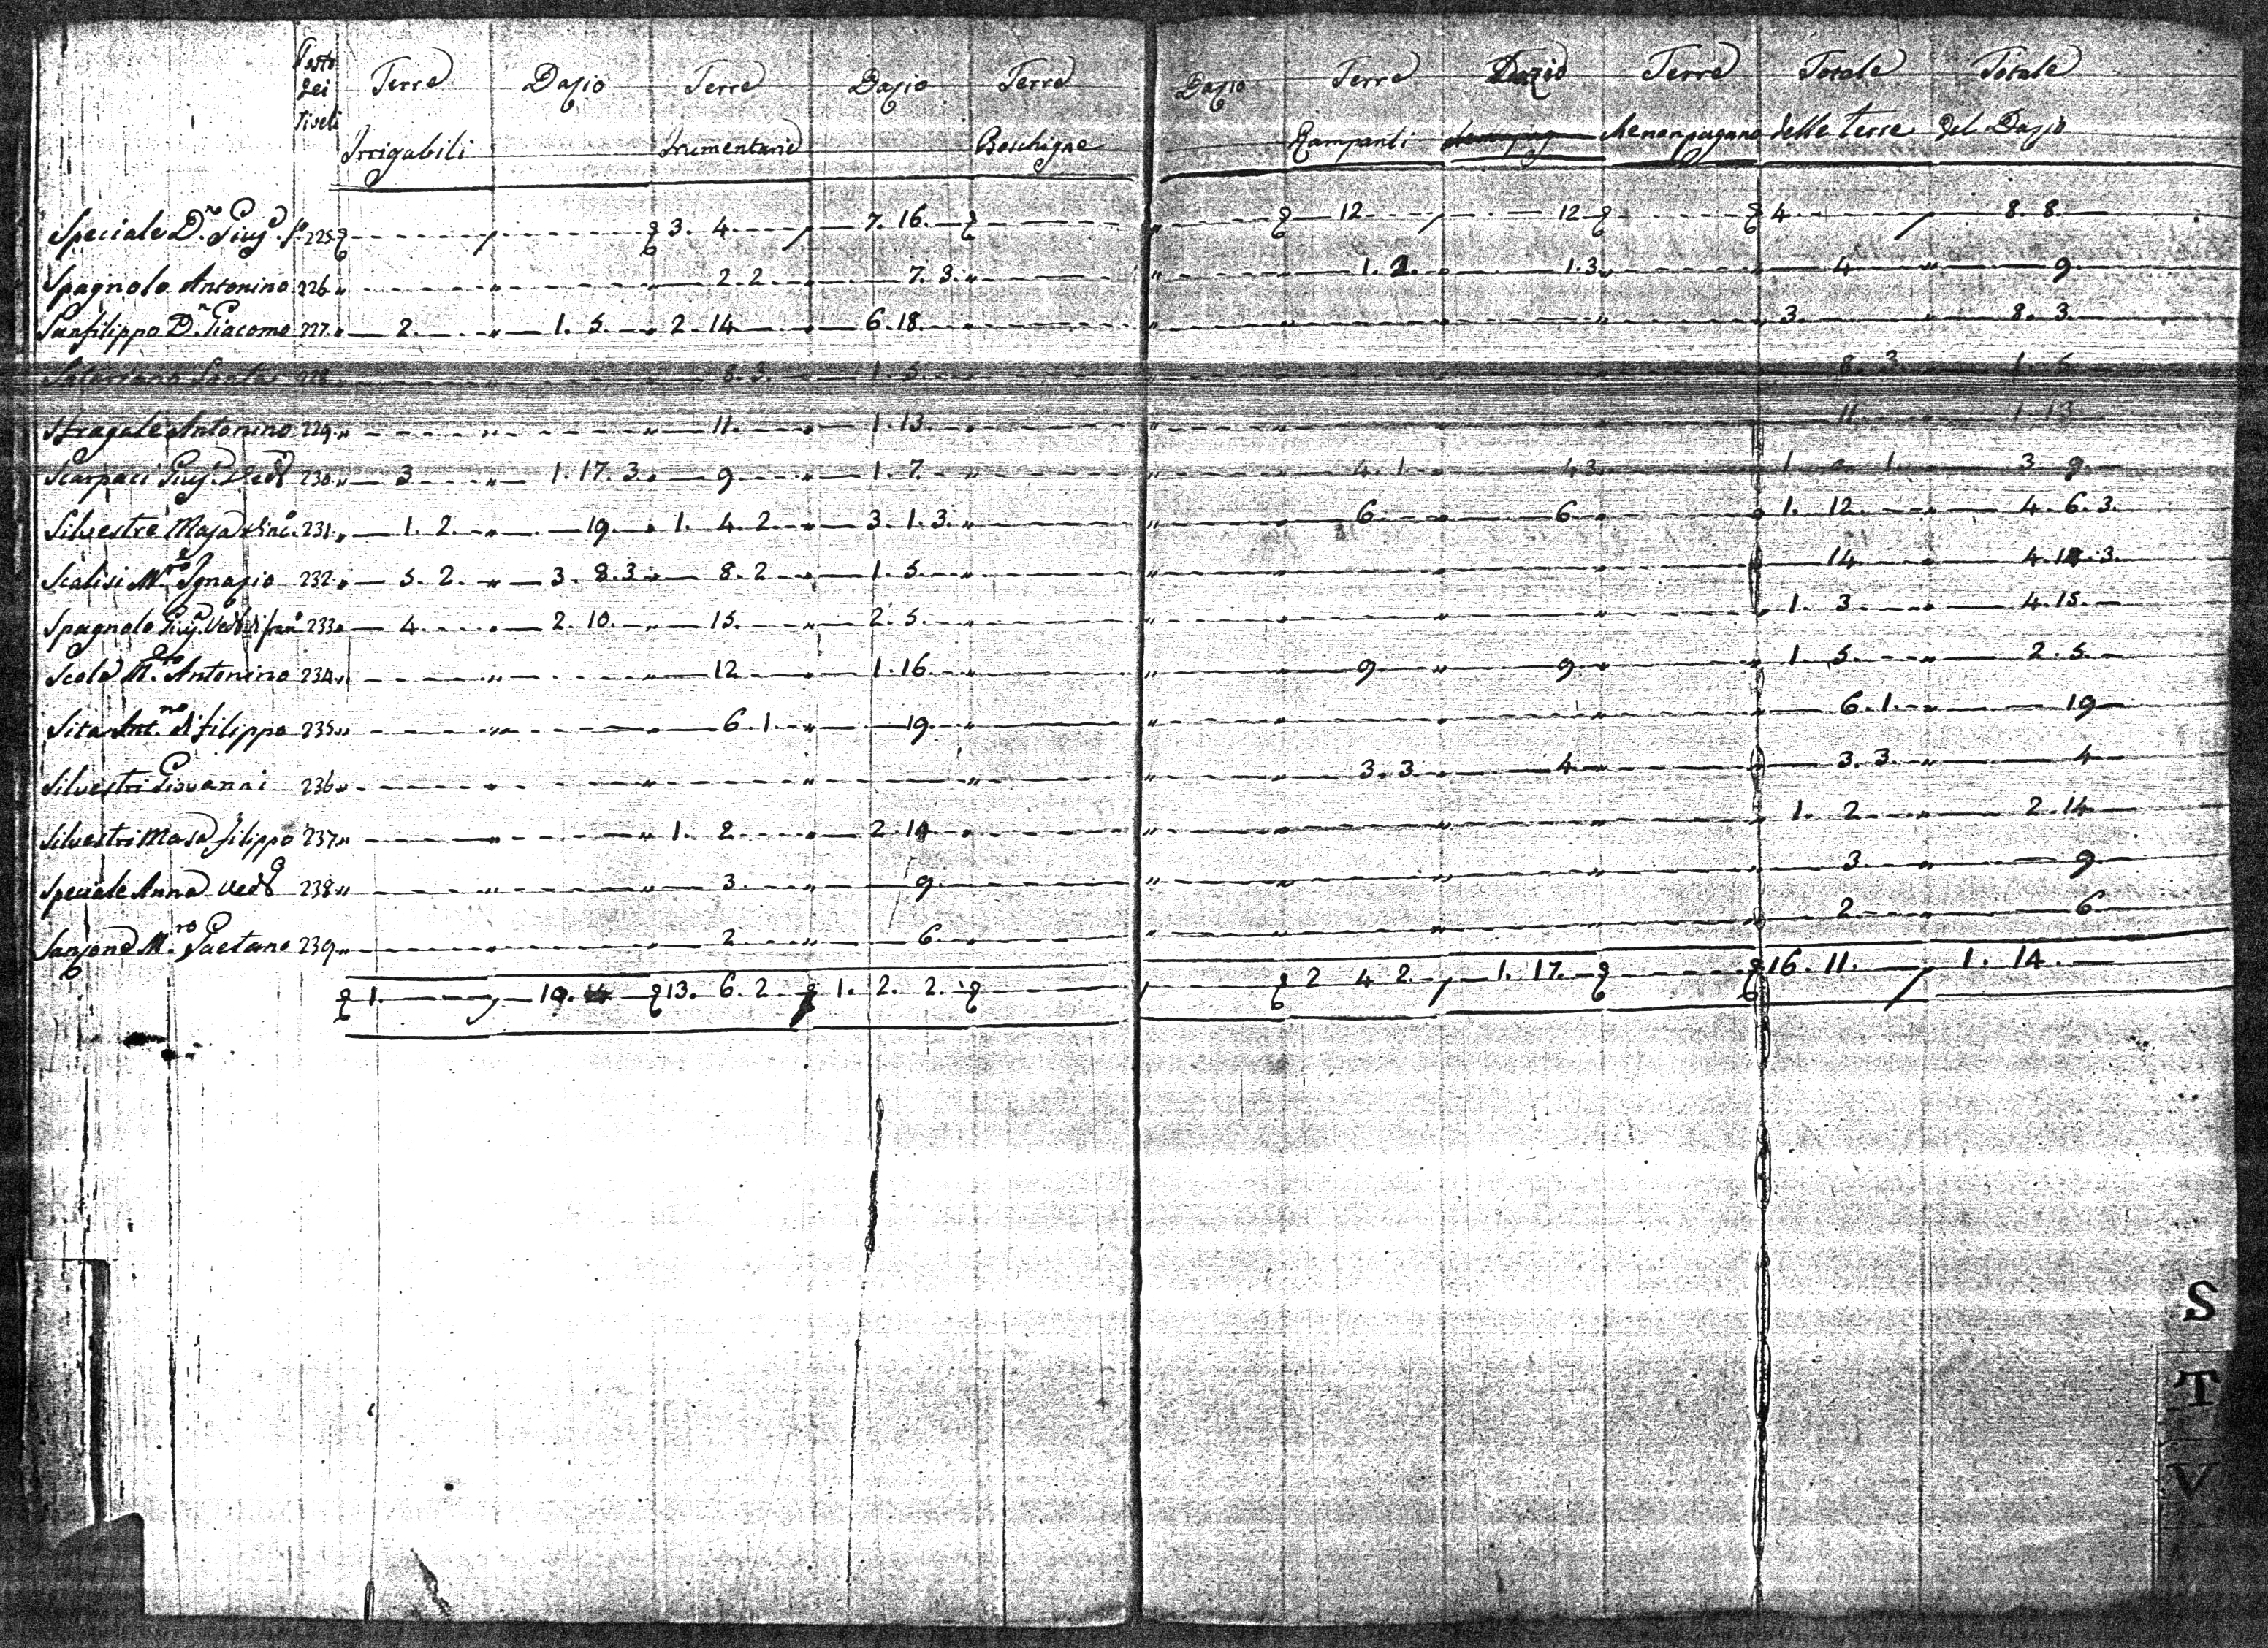 Testo dei Tiseli Terre Dazio Terre Dazio Terre Dazio Terre Dazio Terre Totale Totale
Irrigabili Frumentarie Boschigne Rampanti Menonpagano delle terre del Dazio
Speciale D.no Giuse. fo. 225 3. 4. 7. 16. 12 12 4 8. 8.
Spagnolo Antonino 226 2. 2 7. 3. 1. 2. 1. 3 4 9.
Sanfilippo D.n Giacomo 227. 2. 1. 5. 2. 14 6. 18. 3. 8. 3.
Santa 228 8. 3. 1. 5. 8. 3 1. 5
Stragale Antonino 229 11. 1. 13. 11. 1. 13
Scarpaci Giuse. Veda 230 3 1. 17. 3. 9 1. 7. 4. 1 4 3 1. 1. 3 9.
Silvestre Masa 231. 1. 2. 19. 1. 4. 2 3. 1. 3. 6. 6. 1. 12. 4. 6. 3.
Scalisi M.ro Ignazio 232. 5. 2. 3. 8. 3. 8. 2 1. 5. 14 4. 3.
Spagnolo Giuse. Veda di 233 4. 2. 10. 15. 2. 5. 1. 3. 4. 15.
Scola M.ro Antonino 234 12 1. 16. 9 9. 1. 5. 2. 5.
Sita Ant.no di filippo 235 6. 1. 19. 6. 1. 19
Silvestri Giovanni 236 3. 3. 4 3. 3. 4
Silvestri Masa filippo 237 1. 2 2. 14 1. 2 2. 14
Speciale Anna Veda 238 3. 9. 3. 9.
Sanzone M.ro Gaetano 239 2 6. 2 6
1. 19. 14 13. 6. 2 1. 2. 2. 2 4 2. 1. 17. 16. 11. 1. 14.
S
T
V